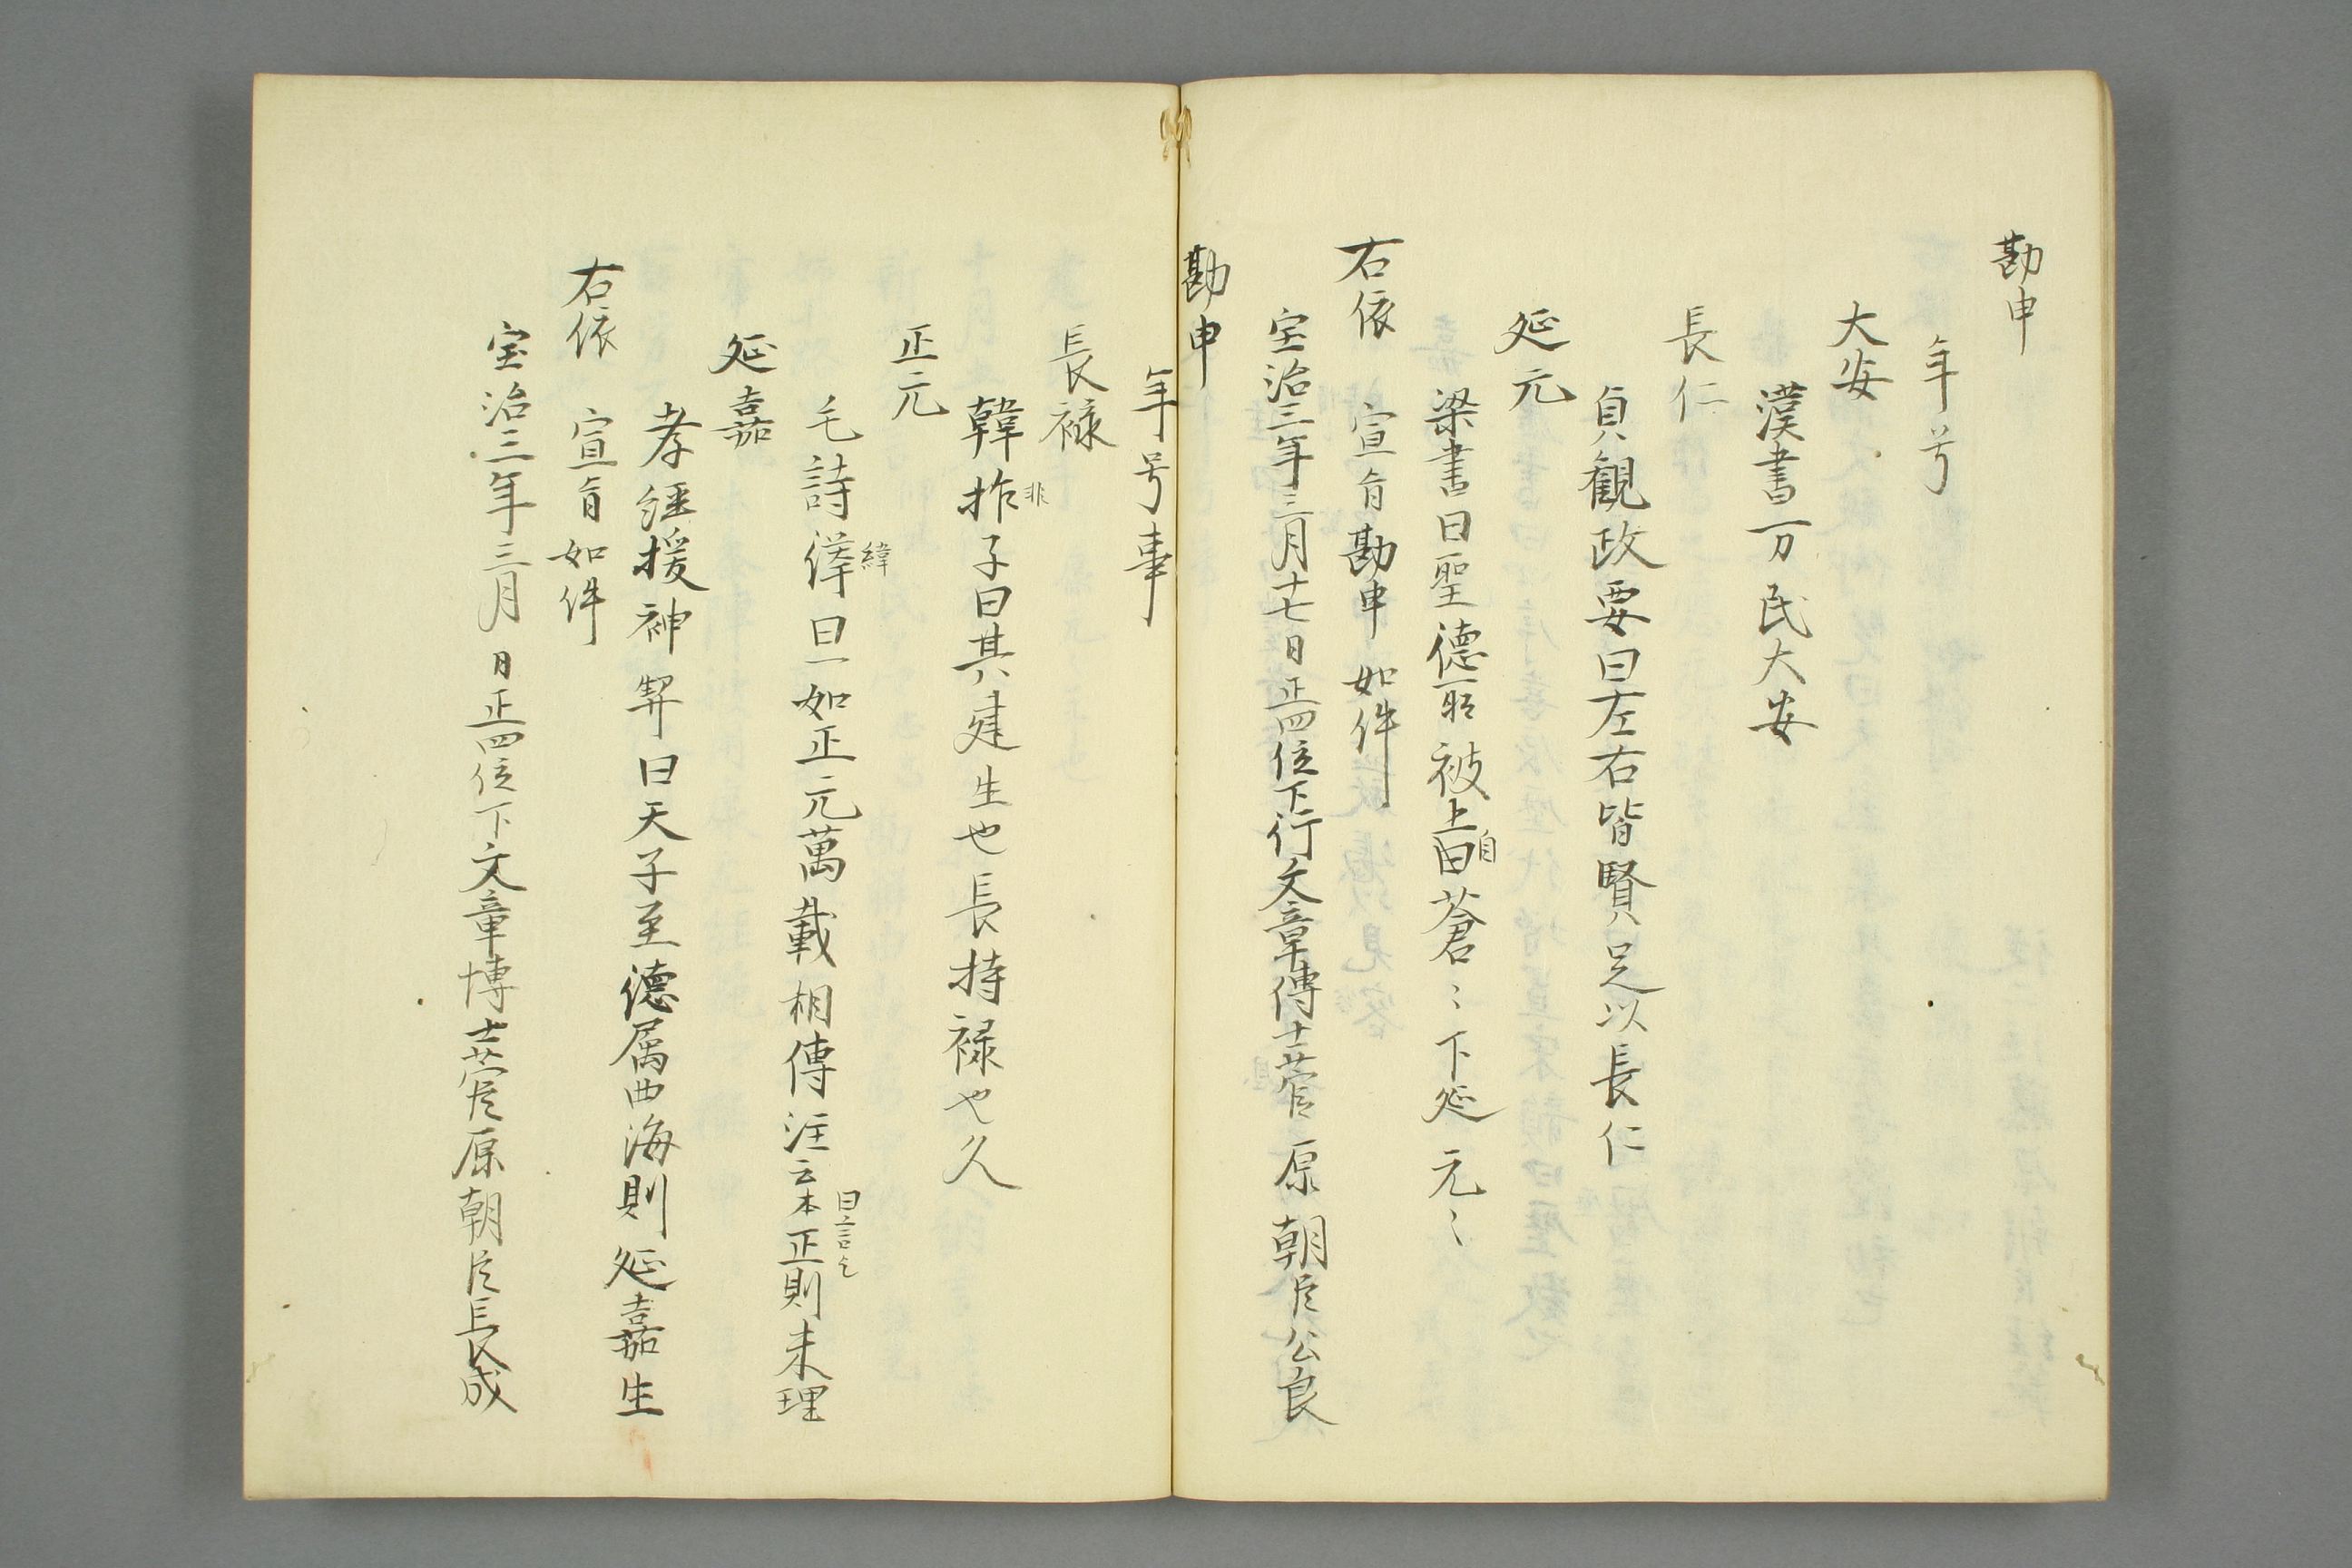 勘申
年号
大安
漢書万民大安
長仁
貞観政要曰左右皆賢足以長仁
延元
梁書曰聖徳所被上曰蒼〻下延元〻
自
右依 宣旨勘申如件
宝治三年三月十七日正四位下行文章博士菅原朝臣公良
勘申
年号事
長禄
韓拃子曰其建生也長持禄也久
非
正元
毛詩緯曰一如正元萬載相傳注云本正則末理
緯
曰言乞
延嘉
孝経援神契曰天子至徳属四海則延嘉生
右依 宣旨如件
宝治三年三月 日正四位下文章博士菅原朝臣長成